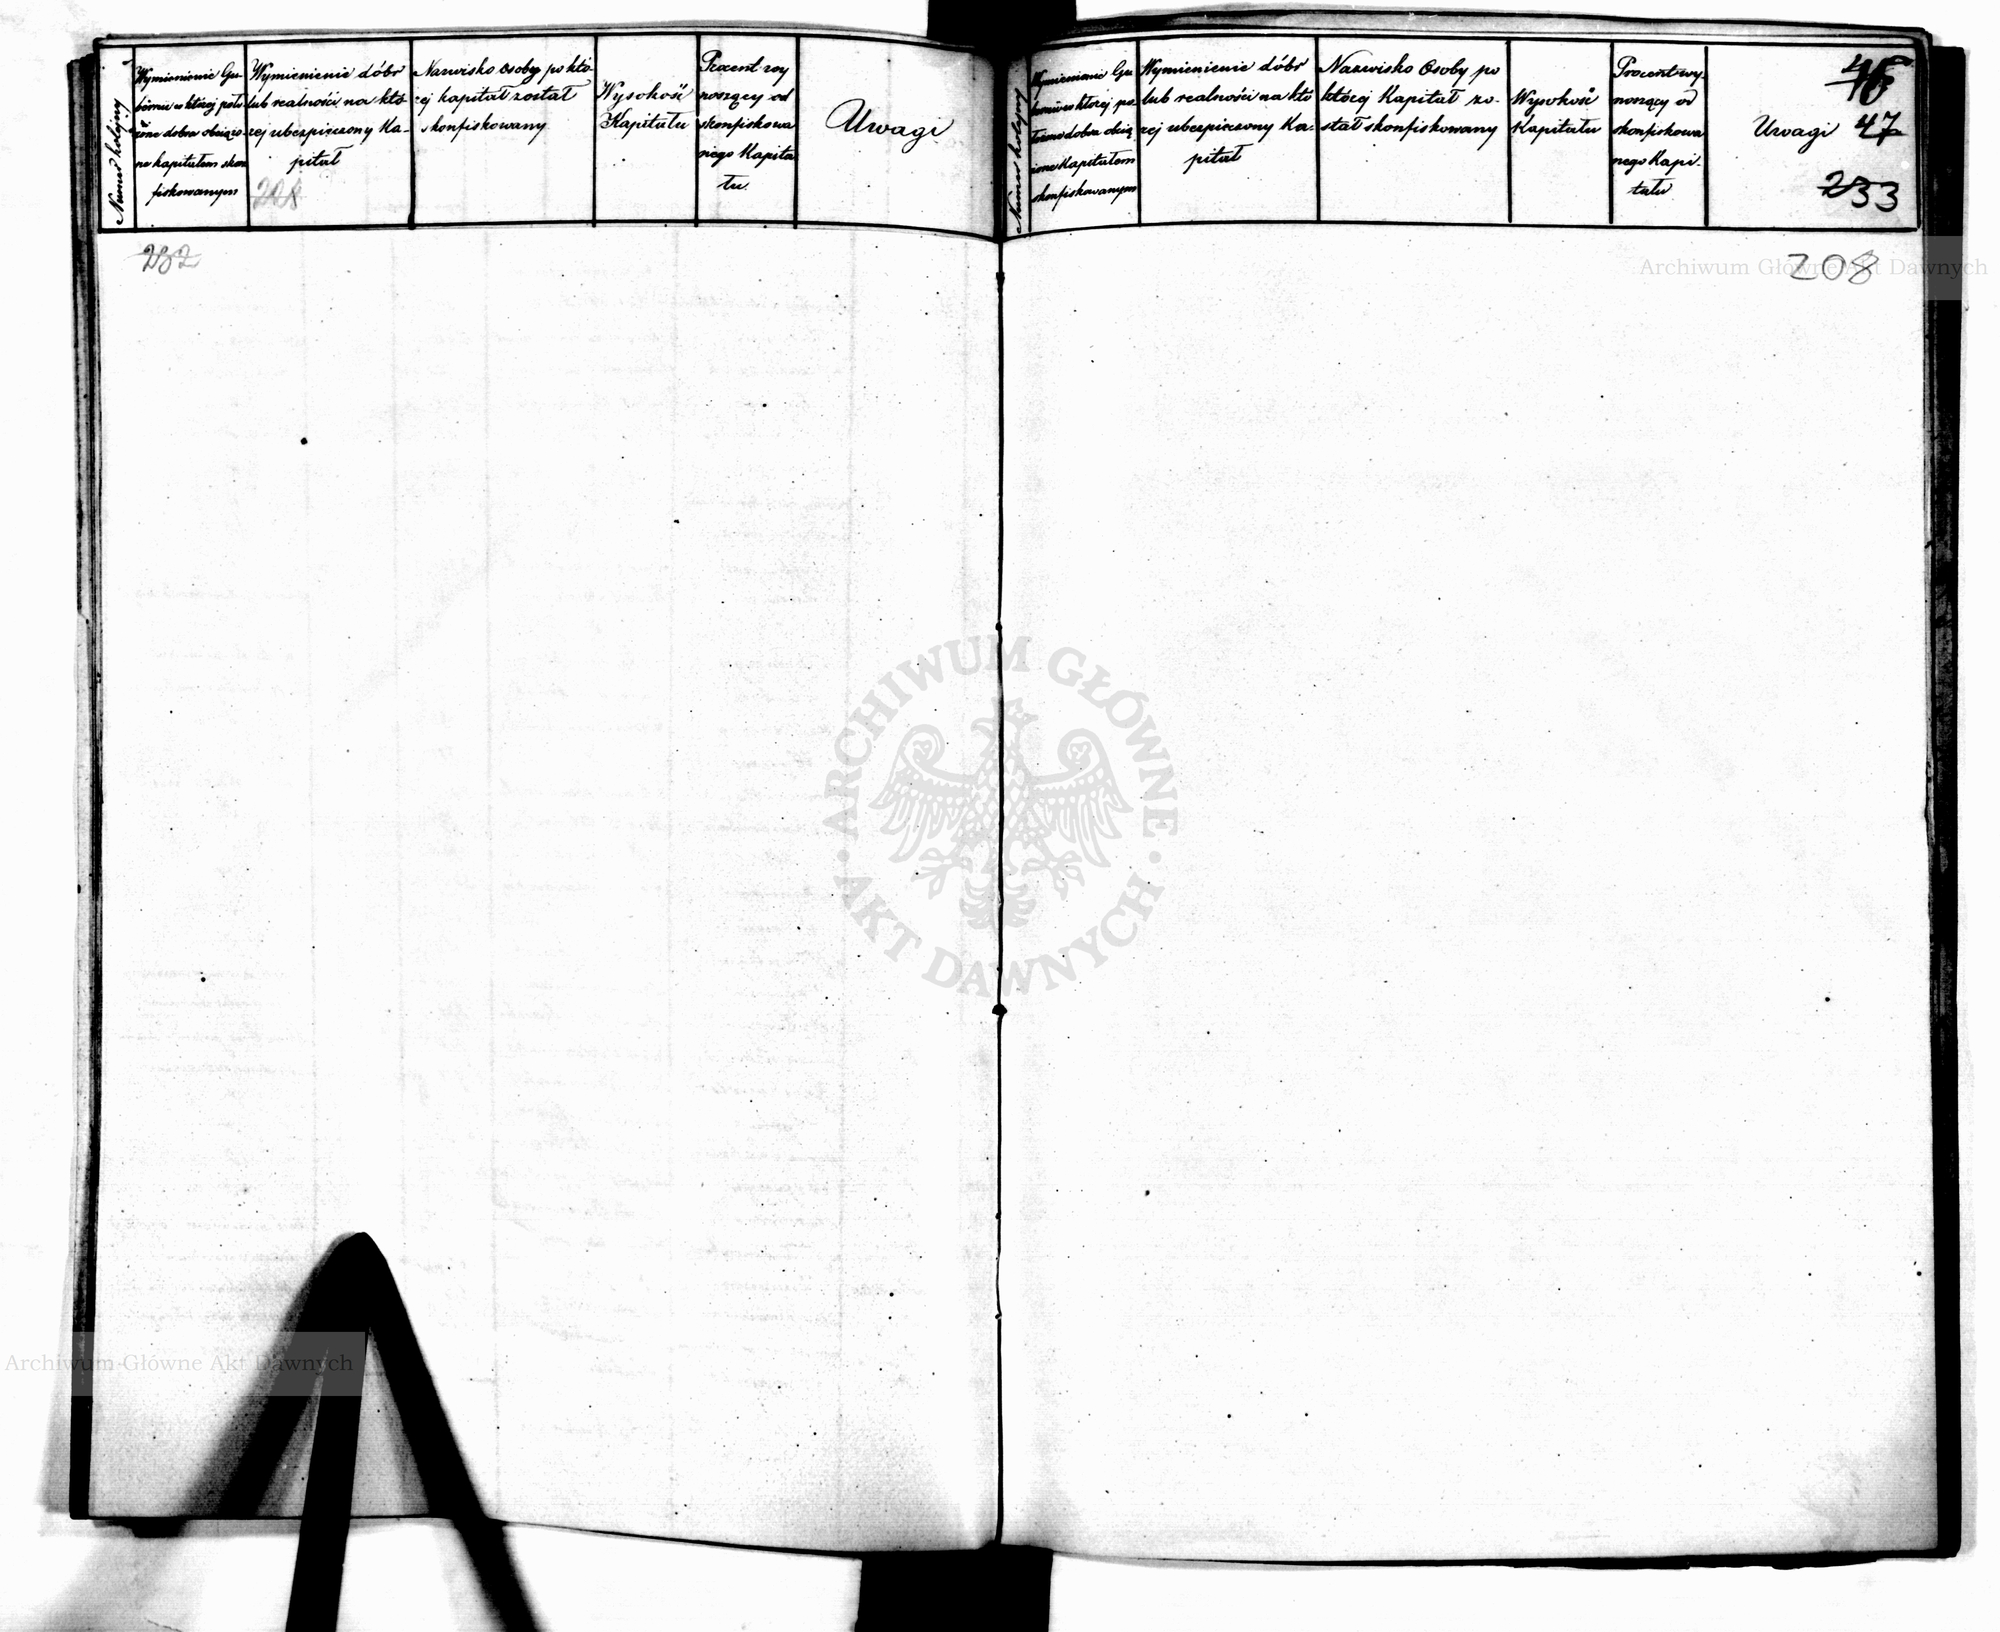 Numer kolejny
Wymienienie Gu-
bernii w której poło
żone dobra obciążo
ne kapitałem skon
fiskowanym
Wymienienie dóbr
lub realności na któ
rej ubezpieczony Ka-
pitał
208
Nazwisko Osoby po któ-
rej kapitał został
skonfiskowany
Wysokość
Kapitału
Procent wy
noszący od
skonfiskowa
nego Kapita
łu.
Uwagi
232
Numer kolejny
Wymienienie Gu
bernii w której po
łożone dobra obcią
żone Kapitałem
skonfiskowanym
Wymienienie dóbr
lub realności na któ
rej ubezpieczony Ka-
pitał
Nazwisko Osoby po
której Kapitał zo-
stał skonfiskowany
Wysokość
Kapitału
Procent wy-
noszący od
skonfiskowa
nego Kapi-
tału
Uwagi
46
47
233
208
Archiwum Główne Akt Dawnych
ARCHIWUM GŁÓWNE
AKT DAWNYCH
Archiwum Główne Akt Dawnych